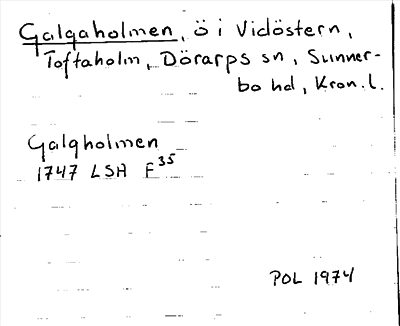 Galgaholmen, ö i Vidöstern,
Toftaholm, Dörarps sn, Sunner-
bo hd, Kron. l.
Galgholmen
1747 LSA F35
POL 1974